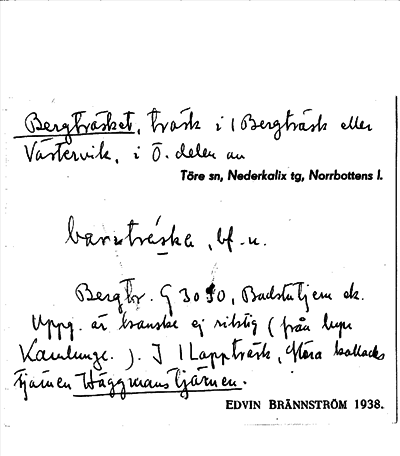 Bergträsket, träsk i 1 Bergträsk eller
Västervik, i Ö. delen av
Töre sn, Nederkalix tg, Norrbottens l.
träska, bf. n.
Bergtr. G 3030, Badstutjern ek.
Uppg. är kanske ej riktig (från byn
). I 1 Lappträsk, östra kallades
tjärnen Häggmanstjärnen.
EDVIN BRÄNNSTRÖM 1938.